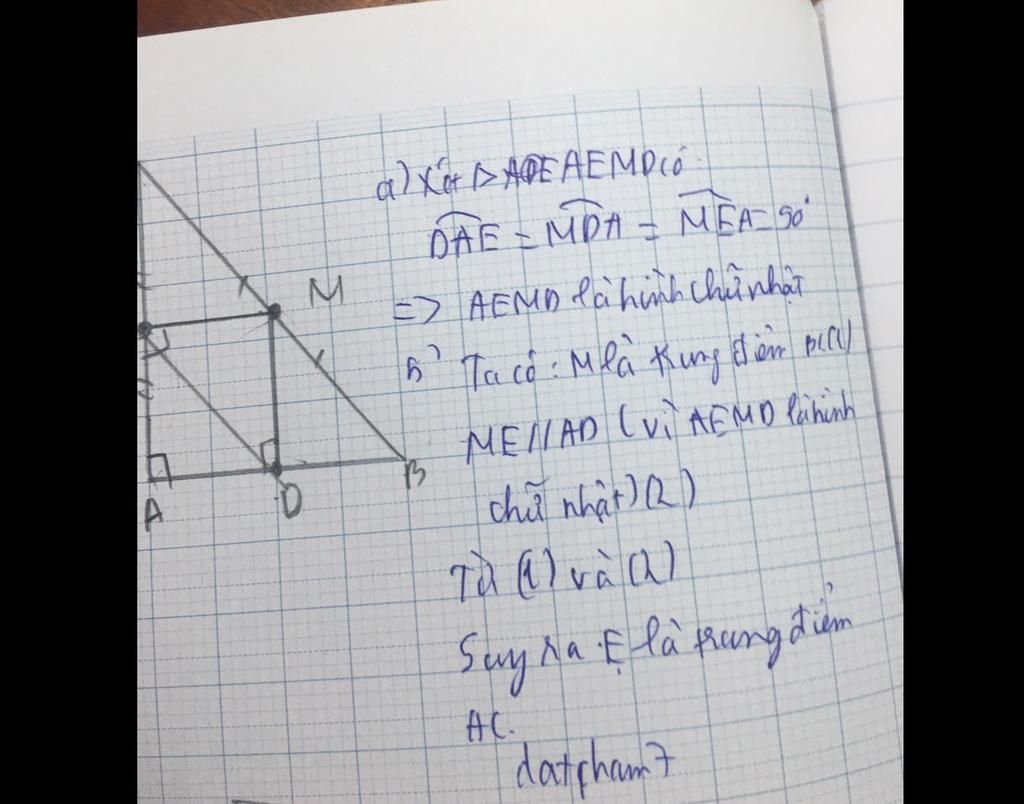 a) Xét ▷ AEMD có:
DAE = MDA = MEA = 90°
=> AEMD là hình chữ nhật
b) Ta có: M là trung điểm BC (1)
ME // AD (vì AEMD là hình
chữ nhật) (2)
Từ (1) và (2)
Suy ra E là trung điểm
AC.
datpham7
M
A
D
B